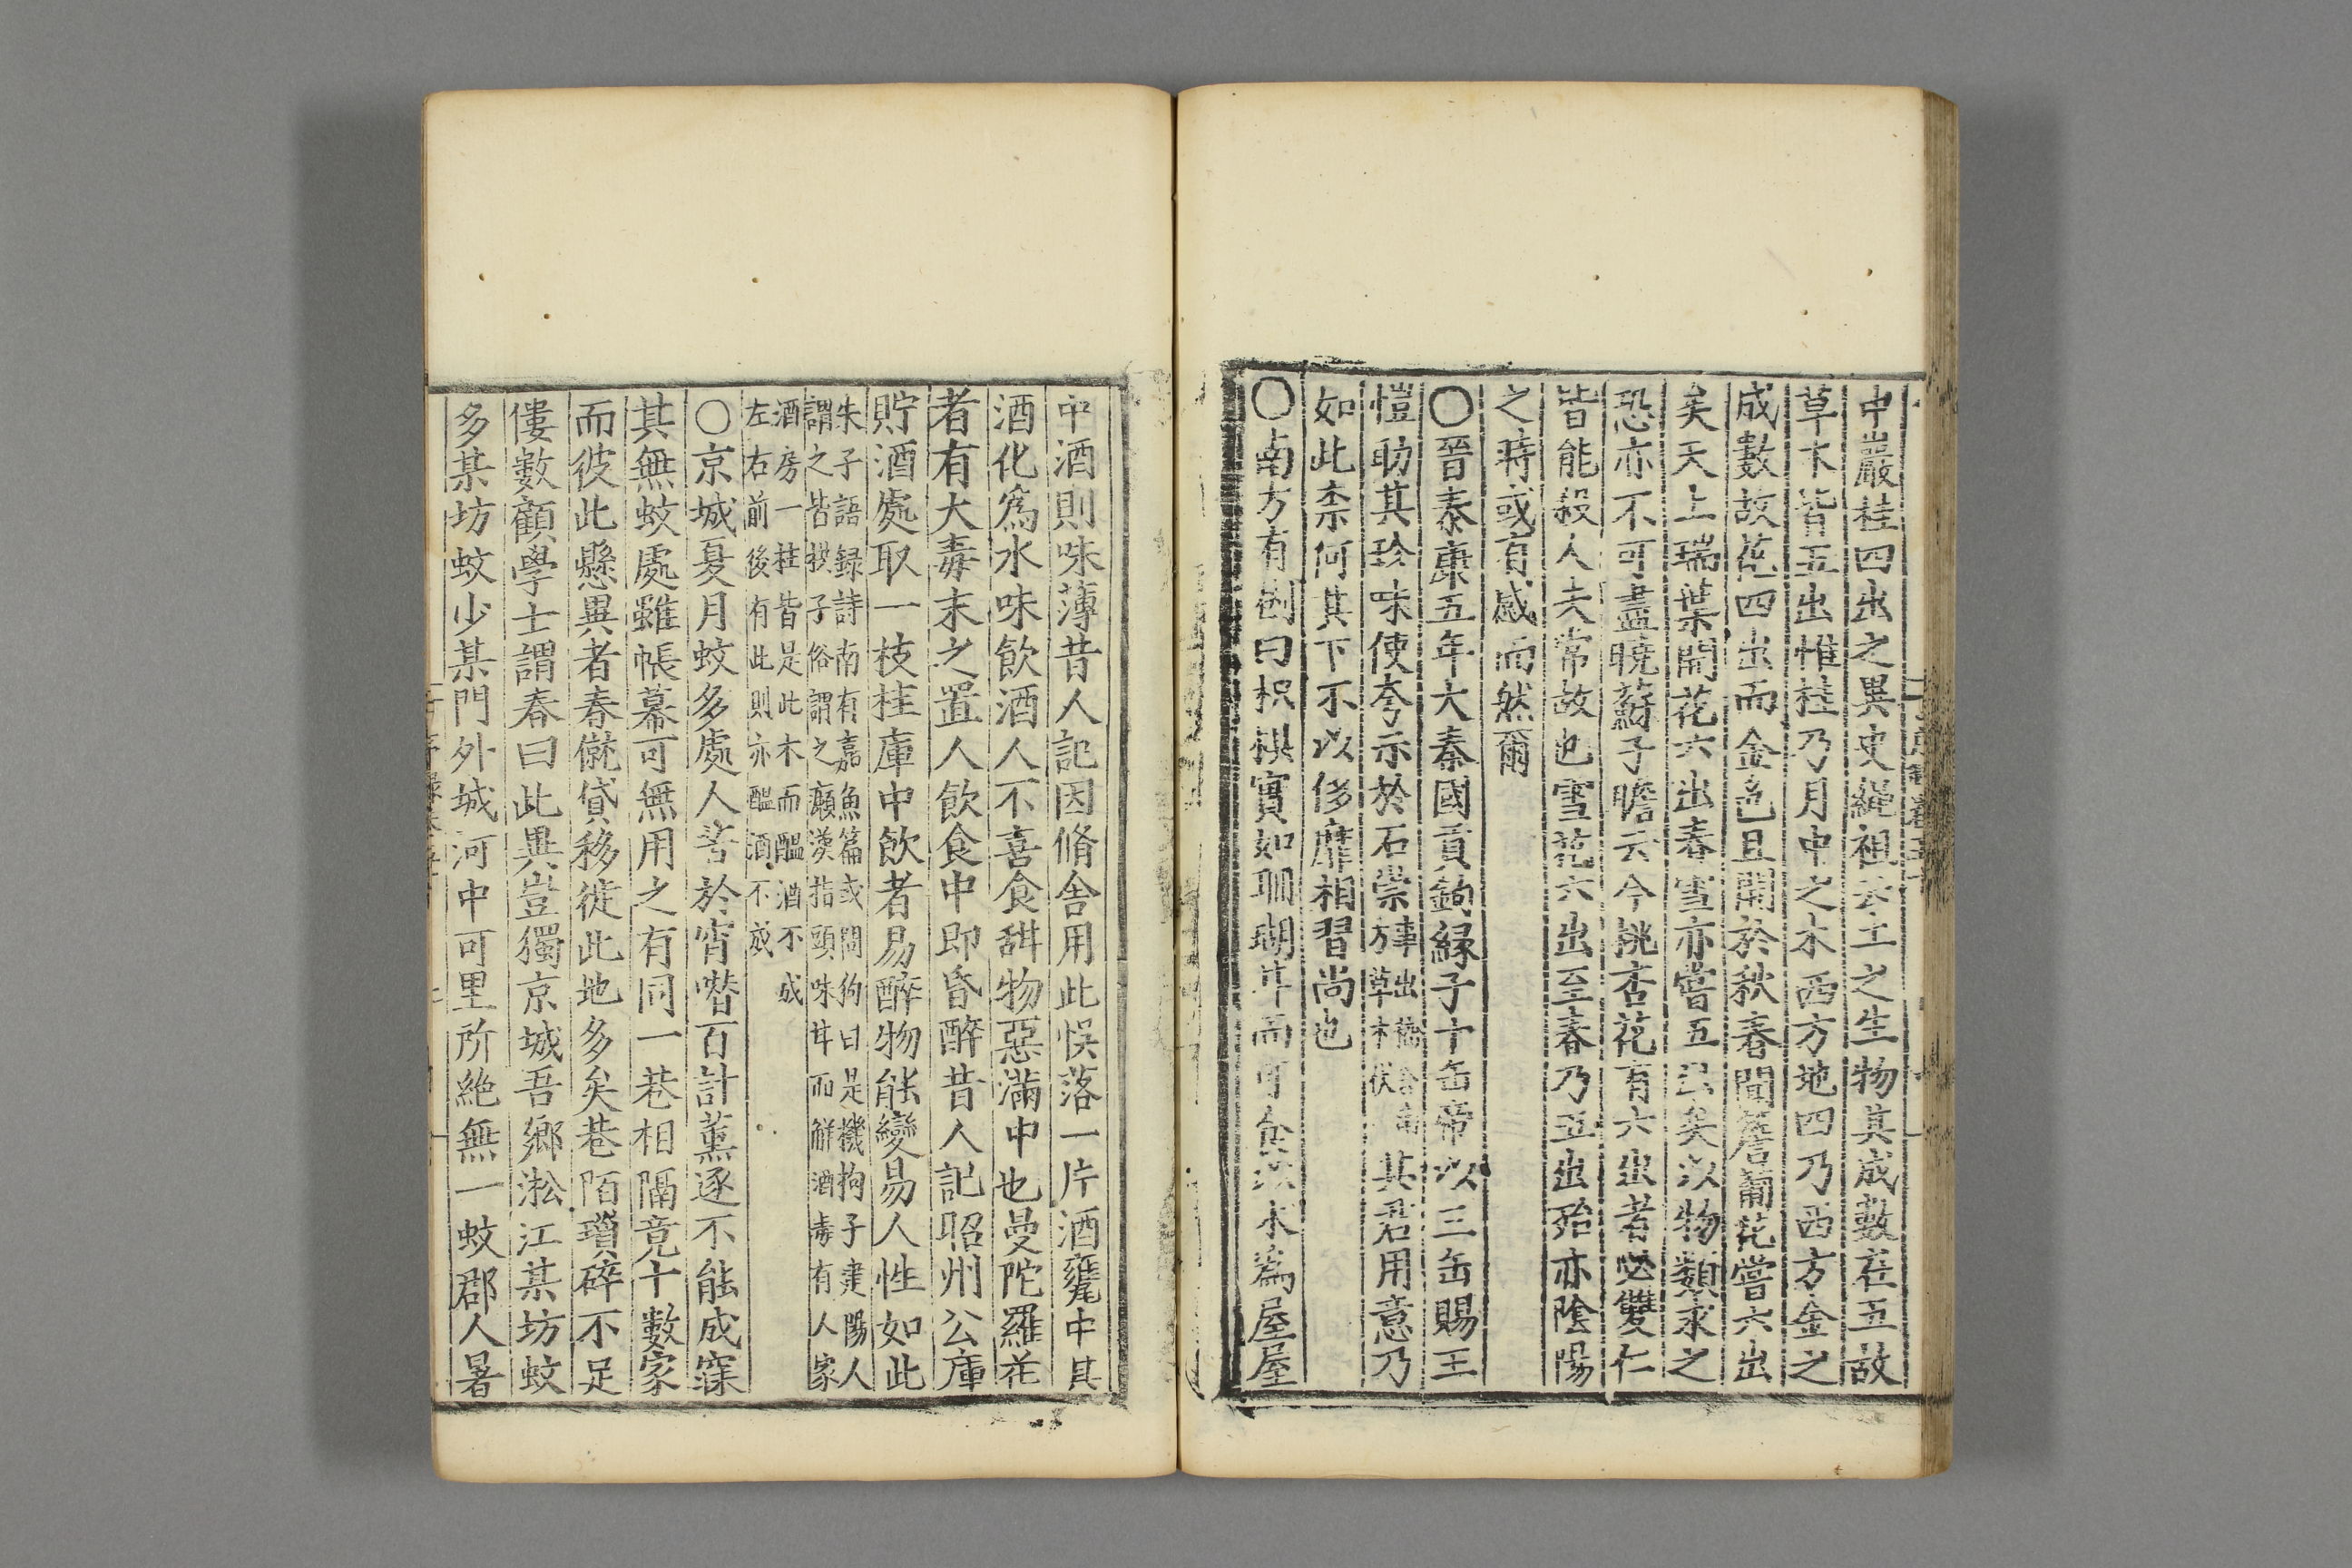 中巖桂四出之異史繩祖云土之生物其成數在五故
草木皆五出惟桂乃月中之木西方地四乃西方金之
成數故花四出而金色且開於秋春聞簷蔔花嘗六出
矣天上瑞葉開花六出春雪亦嘗五出矣以物類求之
恐亦不可盡曉蘇子瞻云今桃杏花有六出者必雙仁
皆能殺人夫常故也雪花六出至春乃五出殆亦陰陽
之時或有感而然爾
○晉泰康五年大秦國貢鉤緣子十缶帝以三缶賜王
愷助其珍味使夸示於石崇事出嵇含南方草木狀其君用意乃
如此柰何其下不以侈靡相習尚也
○南方有樹曰枳椇實如珊瑚其可食以木為屋屋
中酒則味薄昔人記因脩舍用此悞落一片酒甕中其
酒化為水味飲酒人不喜食甜物惡滿中也曼陀羅花
者有大毒末之置人飲食中即昏醉昔人記昭州公庫
貯酒處取一枝挂庫中飲者易醉物能變易人性如此
朱子語録詩南有嘉魚篇或問枸曰是機枸子建陽人
謂之皆拱子俗謂之癩漢指頭味甘而解酒毒有人家
酒房一柱皆是此木而醖酒不成
左右前後有此則亦醖酒不成
○京城夏月蚊多處人苦於宵噆百計薰逐不能成寐
其無蚊處雖帳幕可無用之有同一巷相隔竟十數家
而彼此懸異者春僦貸移徙此地多矣巷陌瑣碎不足
僂數顧學士謂春曰此異豈獨京城吾鄉淞江某坊蚊
多某坊蚊少某門外城河中可里所絶無一蚊郡人暑